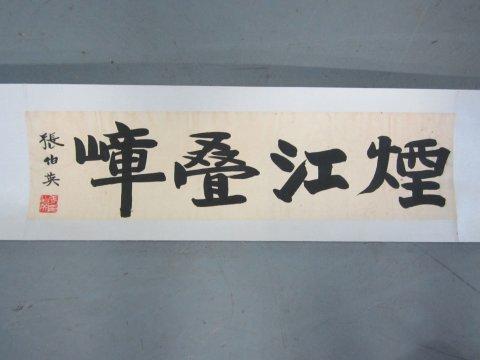 煙江叠嶂
張伯英